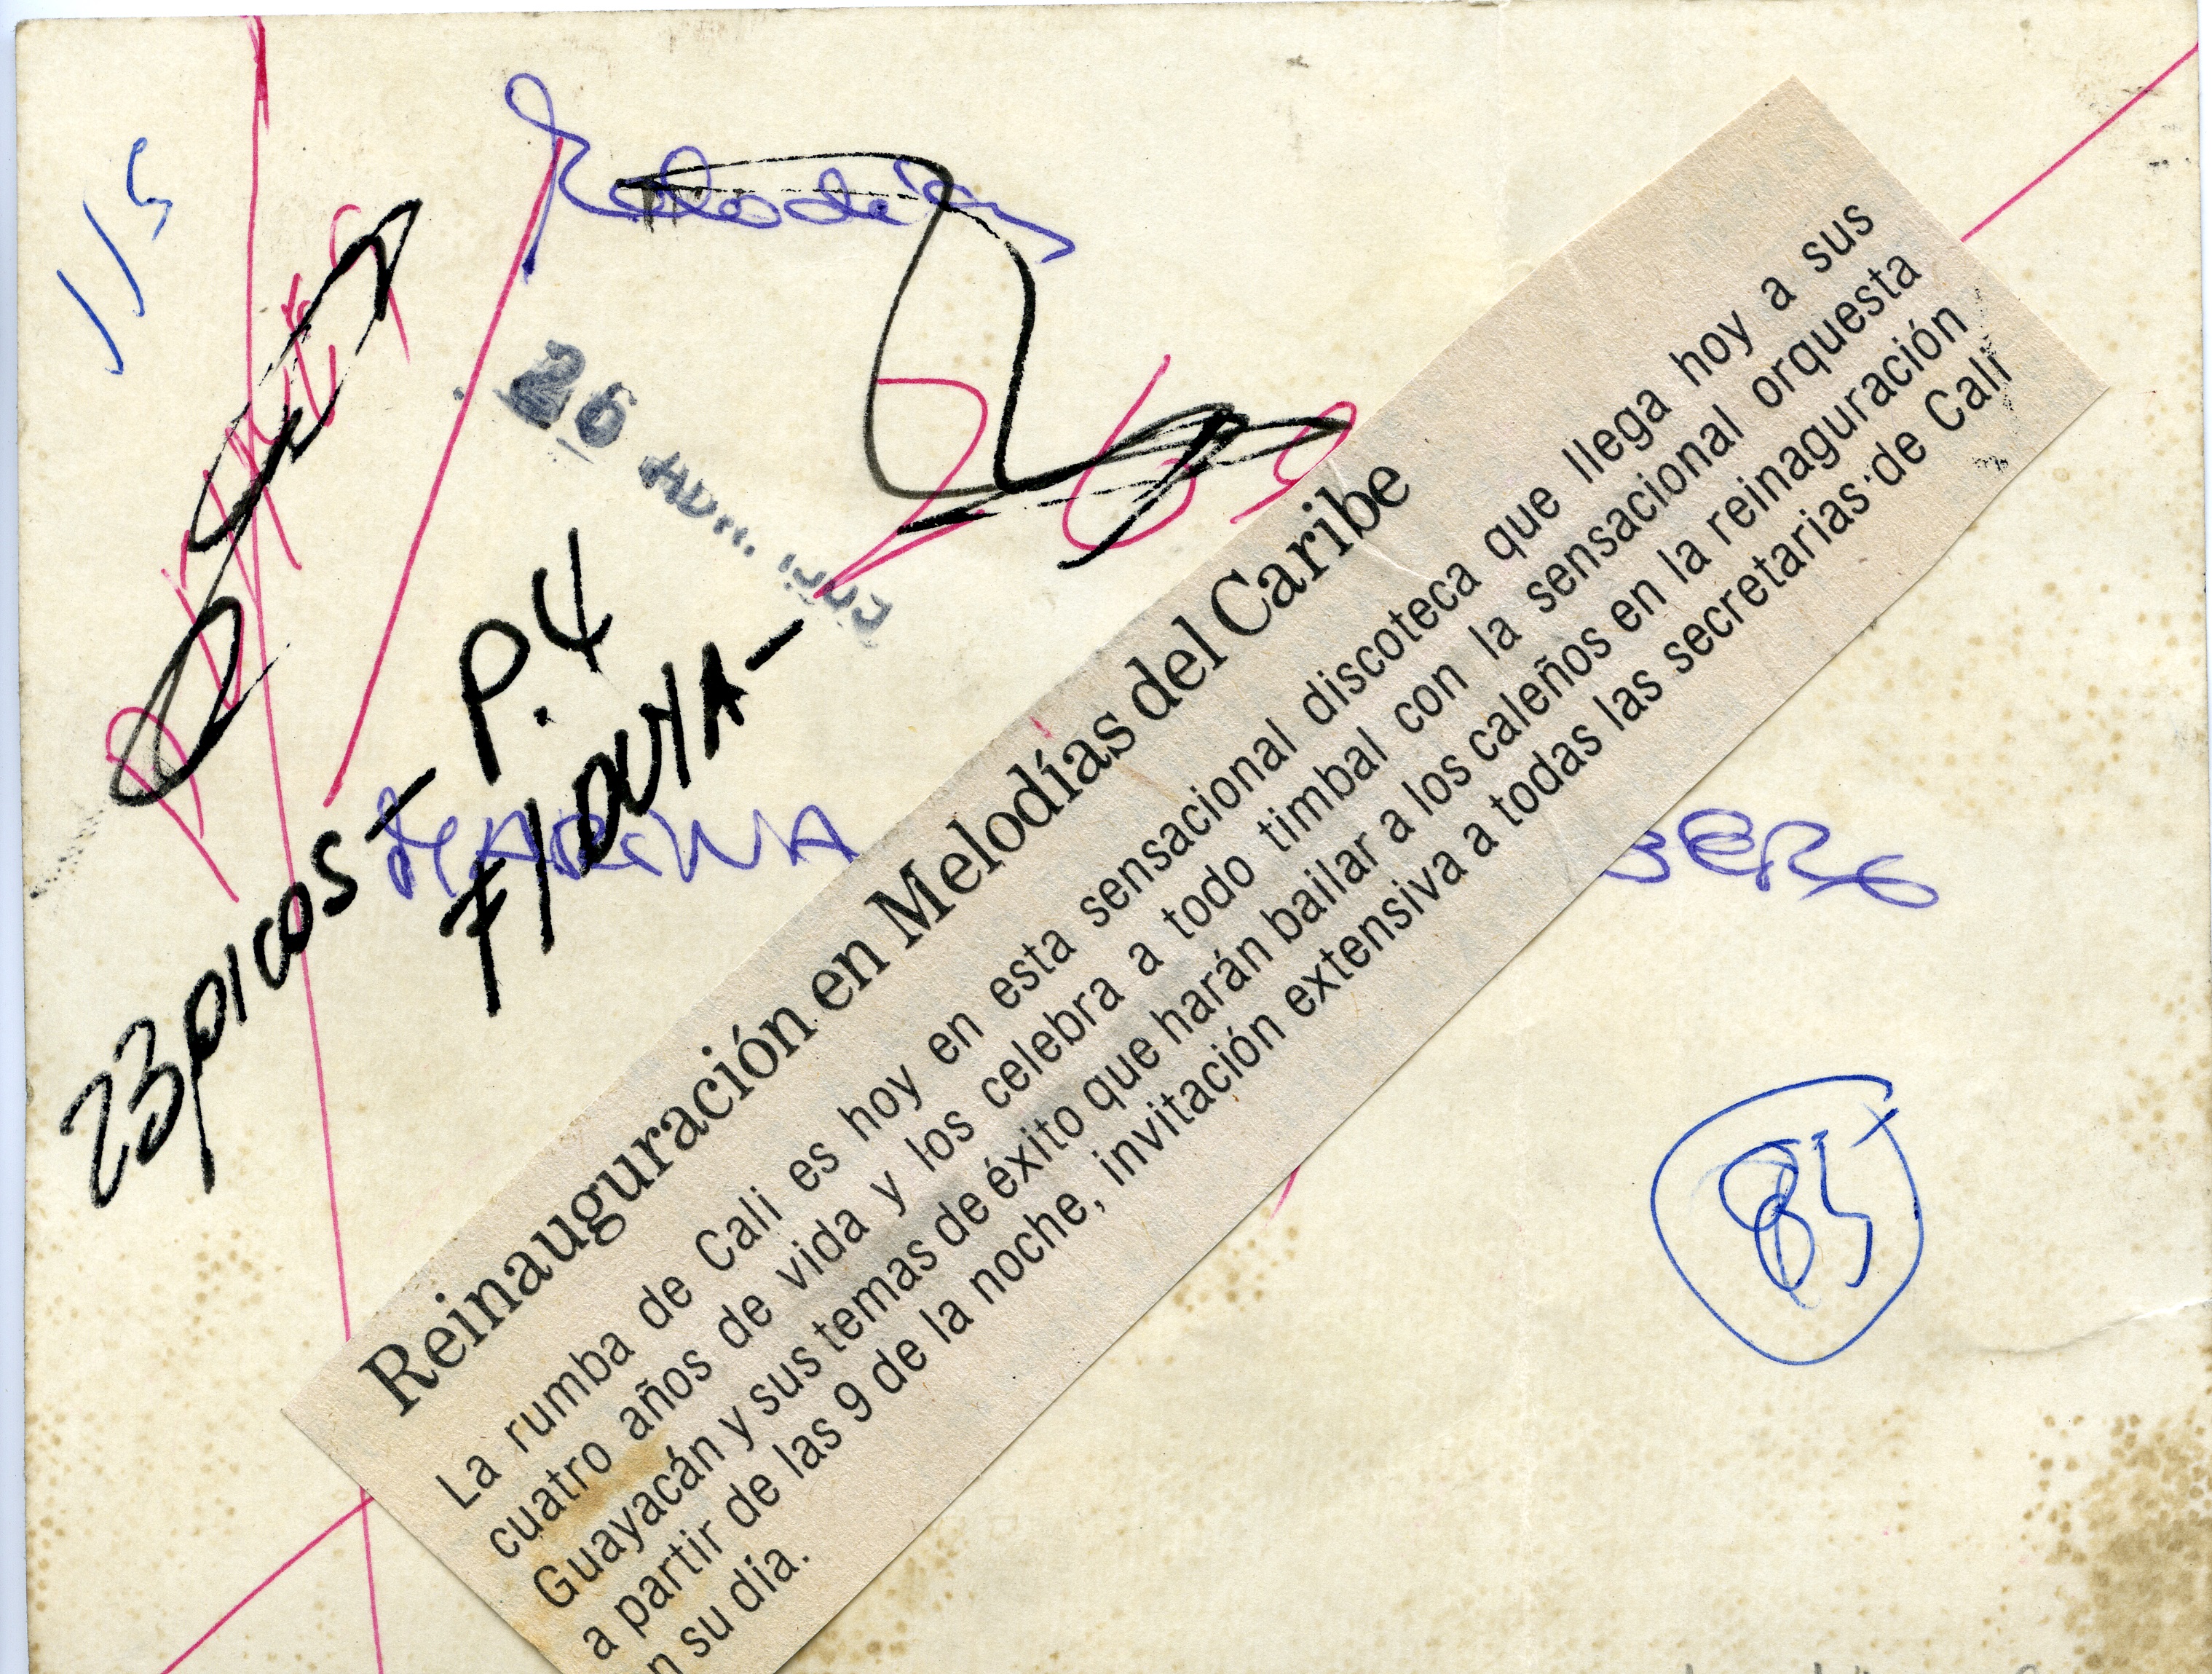 Melodías
26 ABR. 1989
P.4
23 picos -
F/DUYA-
MARINA
BERG
Reinauguración en Melodías del Caribe
La rumba de Cali es hoy en esta sensacional discoteca que llega hoy a sus
cuatro años de vida y los celebra a todo timbal con la sensacional orquesta
Guayacán y sus temas de éxito que harán bailar a los caleños en la reinaguración
a partir de las 9 de la noche, invitación extensiva a todas las secretarias de Cali
n su día.
85